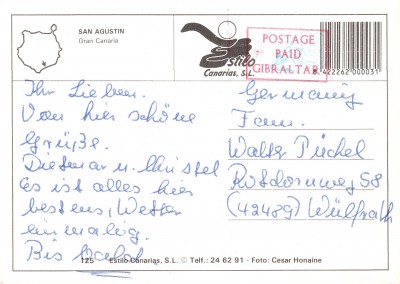 SAN AGUSTIN
Gran Canaria
Estilo
Canarias, S.L.
POSTAGE
PAID
GIBRALTAR
8 422262 000031
Ihr Lieben.
Von hier schöne
Grüße.
Dietmar u. Christel
Es ist alles hier
bestens, Wetter
einmalig.
Bis bald
Germany
Fam.
Walter Püchel
Rotdornweg 58
(42489) Wülfrath
125 Estilo Canarias, S.L. © Telf.: 24 62 91 - Foto: Cesar Honaine